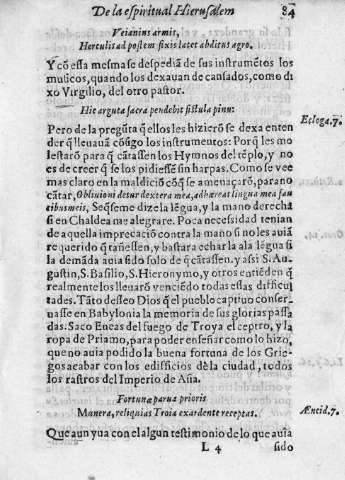 De la espiritual Hierusalem 84
Veianius armis,
Herculis ad postem fixis latet abditus agro.
Y cō essa mesma se despedian de sus instrumētos los
musicos, quando los dexauan de cansados, como di
xo Virgilio, del otro pastor.
Hic arguta sacra pendebit fistula pinu:
Ecloga, 7.
Pero de la pregūta q̄ ellos les hizierō se dexa enten
der q̄ lleuauā cōsigo los instrumentos: Porq̄ les mo
lestarō para q̄ cātassen los Hymnos del tēplo, y no
es de creer q̄ se los pidiessē sin harpas. Como se vee
mas claro en la maldiciō cō q̄ se amenaçarō, para no
cātar, Obliuioni detur dextera mea, adhæreat lingua mea fau
cibus meis, Seq̄seme dize la lēgua, y la mano derecha
si en Chaldea me alegrare. Poca necessidad tenian
de aquella imprecació contra la mano si no les auiā
requerido q̄ tañessen, y bastara echarla ala lēgua si
la demāda auia sido solo de q̄ cātassen. y assi S. Au-
gustin, S. Basilio, S. Hieronymo, y otros entiēden q̄
realmente los lleuarō venciēdo todas essas difficul
tades. Tāto desseo Dios q̄ el pueblo captiuo conser-
uasse en Babylonia la memoria de sus glorias passa
das. Saco Eneas del fuego de Troya el ceptro, y la
ropa de Priamo, para poder enseñar como lo hizo,
que no auia podido la buena fortuna de los Grie-
gos acabar con los edificios dēla ciudad, todos
los rastros del Imperio de Asia.
Fortunæ parua prioris
Munera, reliquias Troia ex ardente receptas.
Æneid. 7.
Que aun yua con el algun testimonio de lo que auia
L 4 sido